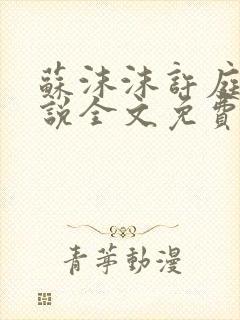 蘇沫沫許庭
說全文免費
青華動漫